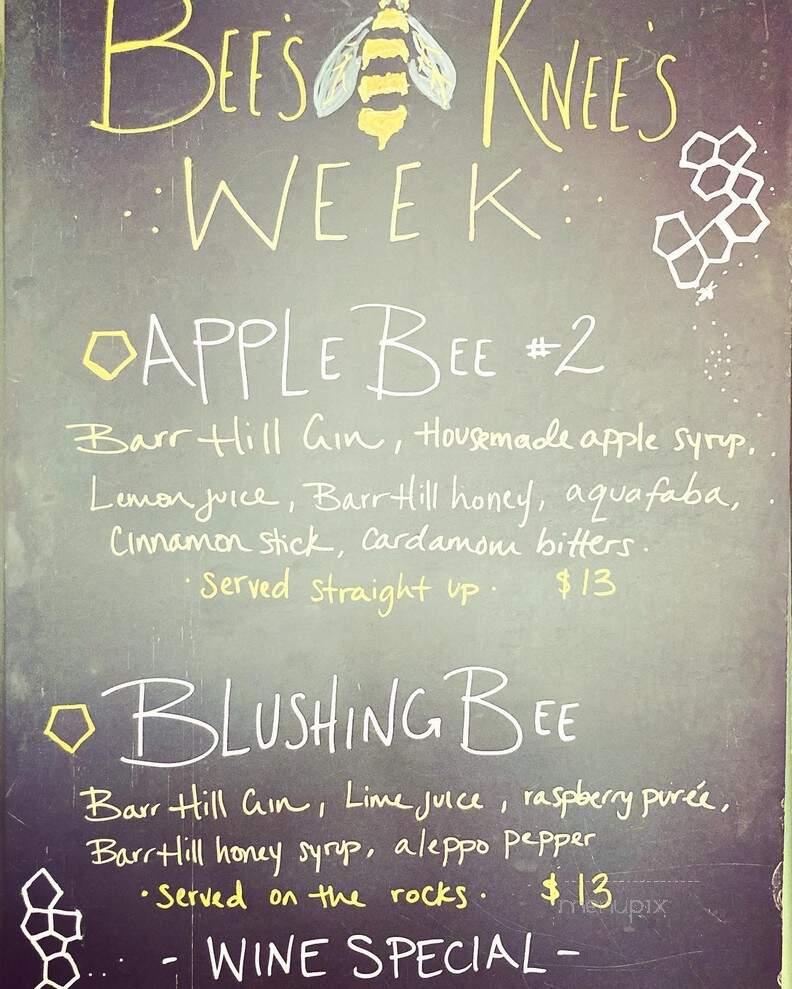 BEE'S KNEE'S
WEEK
APPLE BEE #2
Barr Hill Gin, Housemade apple syrup,
Lemon juice, Barr Hill honey, aquafaba,
Cinnamon stick, Cardamom bitters.
· Served straight up · $13
BLUSHING BEE
Barr Hill Gin, Lime juice, raspberry purée,
Barr Hill honey syrup, aleppo pepper
· Served on the rocks · $13
menupix
- WINE SPECIAL -